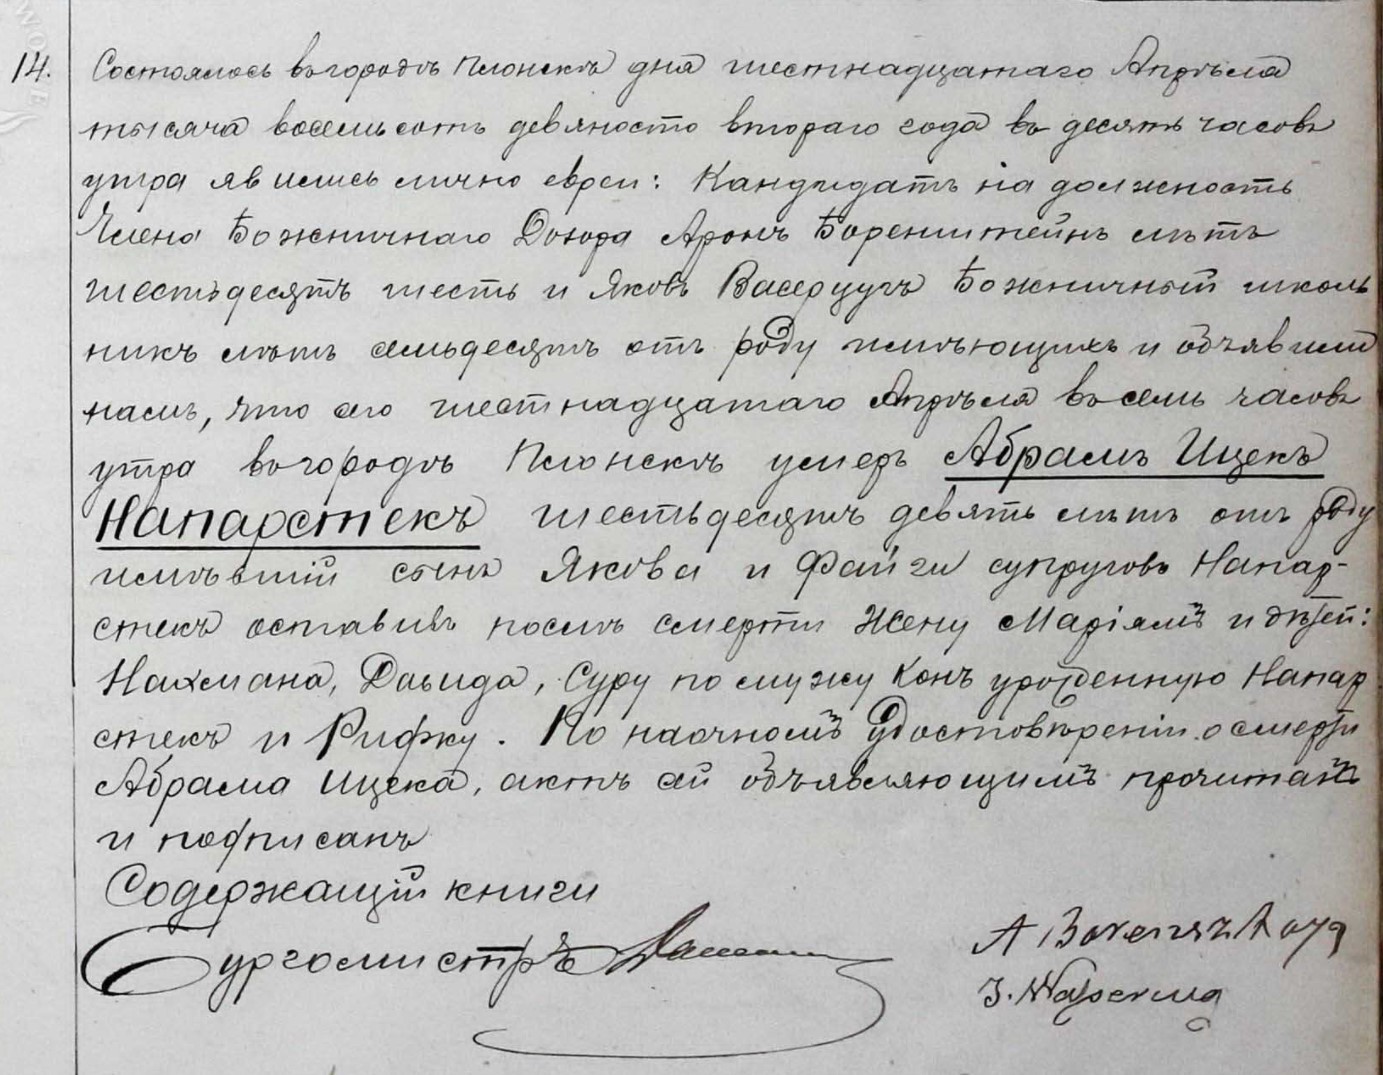 14. Состоялось въ городѣ Плонскѣ дня шестнадцатаго Апрѣля
тысяча восемьсотъ девяносто втораго года въ десять часовъ
утра явились лично евреи: Кандидатъ на должность
Члена Божничнаго Дозора Аронъ Боренштейнъ лѣтъ
шестьдесятъ шесть и Яковъ Васерцугъ Божничный школь
никъ лѣтъ семьдесятъ отъ роду имѣющихъ и объявили
намъ, что сего шестнадцатаго Апрѣля въ семь часовъ
утра въ городѣ Плонскѣ умеръ Абрамъ Ицекъ
Напарстекъ шестьдесятъ девять лѣтъ отъ роду
имѣвшій сынъ Якова и Файги супруговъ Напар-
стекъ оставивъ послѣ смерти жену Маріямъ и дѣтей:
Нахмана, Давида, Суру по мужу Конъ урожденную Напар
стекъ и Рифку. По наочномъ удостовѣреніи о смерти
Абрама Ицека, актъ сей объявляющимъ прочитанъ
и подписанъ
Содержащій книги
Бургомистръ
A Borensztayn
J. Waserzug